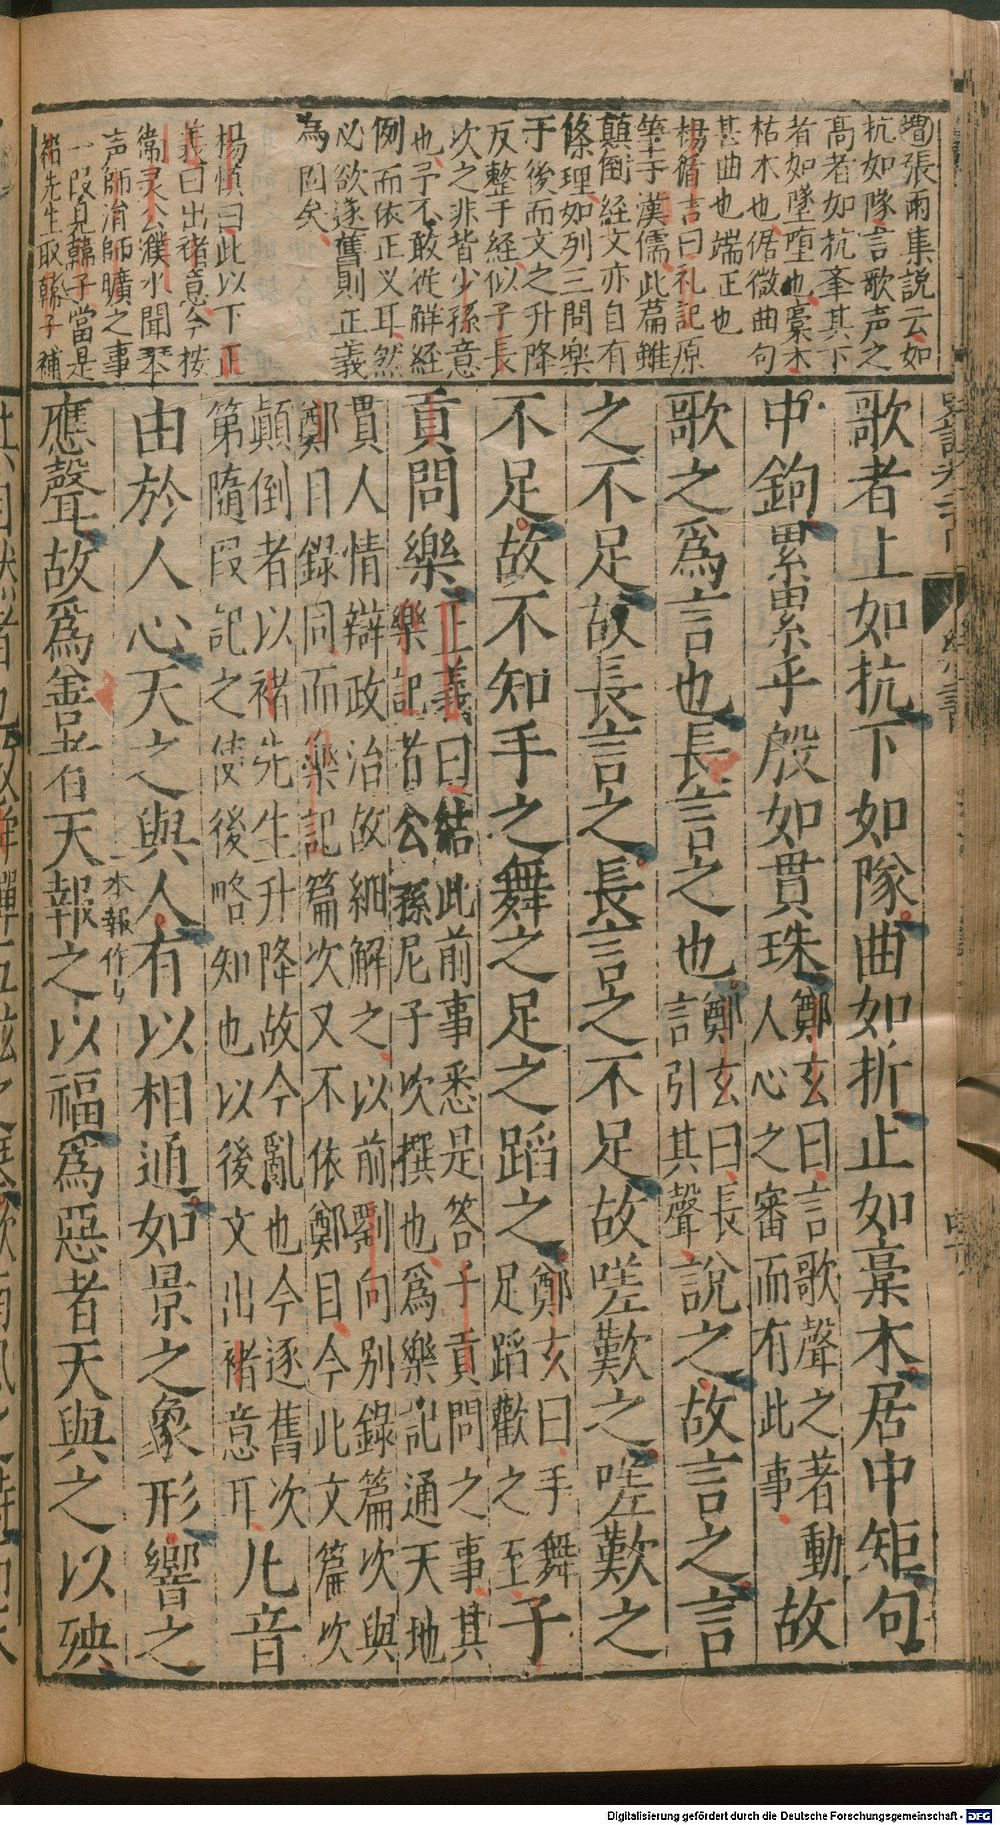 增張雨集說云如
抗如隊言歌声之
髙者如抗峯其下
者如墜堕也槀木
枯木也倨微曲句
甚曲也端正也
楊循言曰礼記原
筆于漢儒此篇雖
顛倒經文亦自有
條理如列三問樂
于後而文之升降
反整于經似子長
次之非皆少孫意
也予不敢從觧經
例而依正义耳然
必欲遂舊則正義
為囙矣
楊慎曰此以下正
義曰出禇意今按
衛灵公濮水聞琴
声師涓師曠之事
一段見韓子當是
禇先生取韓子補
歌者上如抗下如隊曲如折止如槀木居中矩句
中鉤累累乎殷如貫珠鄭玄曰言歌聲之著動
人心之審而有此事故
歌之爲言也長言之也鄭玄曰長
言引其聲說之故言之言
之不足故長言之長言之不足故嗟歎之嗟歎之
不足故不知手之舞之足之蹈之鄭玄曰手舞
足蹈歡之至子
貢問樂正義曰結此前事悉是答子貢問之事其
樂記者公孫尼子次撰也爲樂記通天地
貫人情辯政治故細解之以前劉向别錄篇次與
鄭目錄同而樂記篇次又不依鄭目今此文篇次
顛倒者以褚先生升降故今亂也今逐舊次
第隨段記之使後略知也以後文出褚意耳凡音
由於人心天之與人有以相通如景之象形響之
應聲故爲善者天報之以福爲惡者天與之以殃
一本報作与
Digitalisierung gefördert durch die Deutsche Forschungsgemeinschaft - DFG